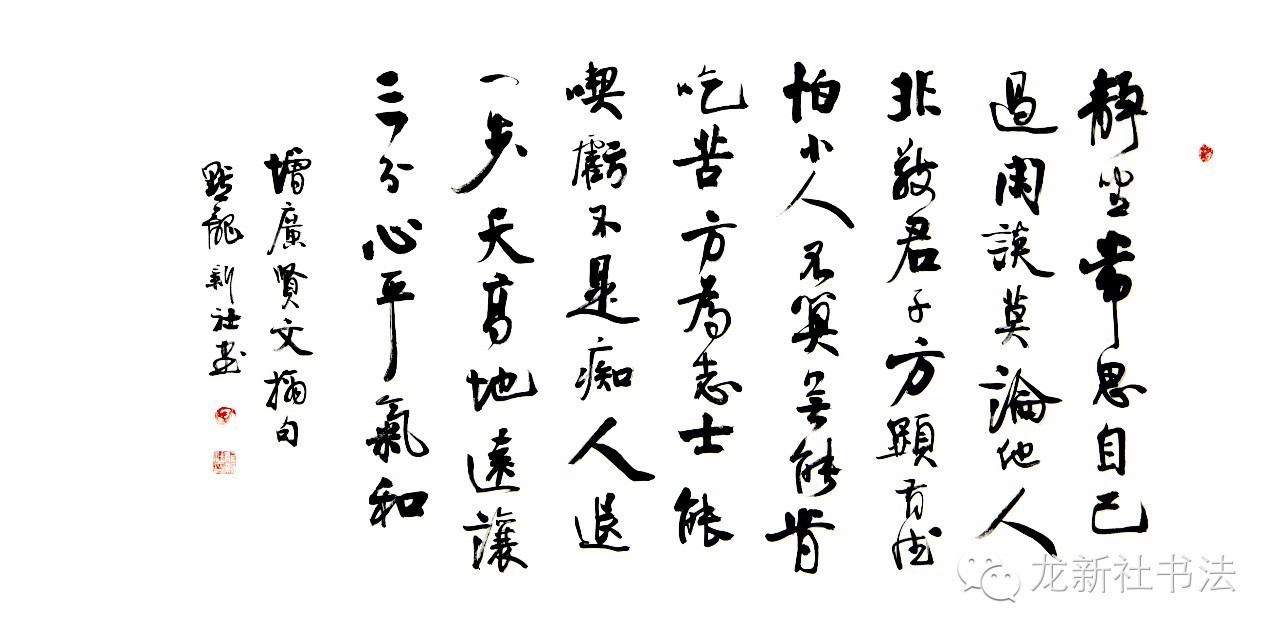 靜坐常思自己
過閑談莫論他人
非敬君子方顯有德
怕小人不算無能肯
吃苦方為志士能
喫虧不是痴人退
一步天高地遠讓
三分心平氣和
增廣賢文摘句
龍新社書
龙新社书法